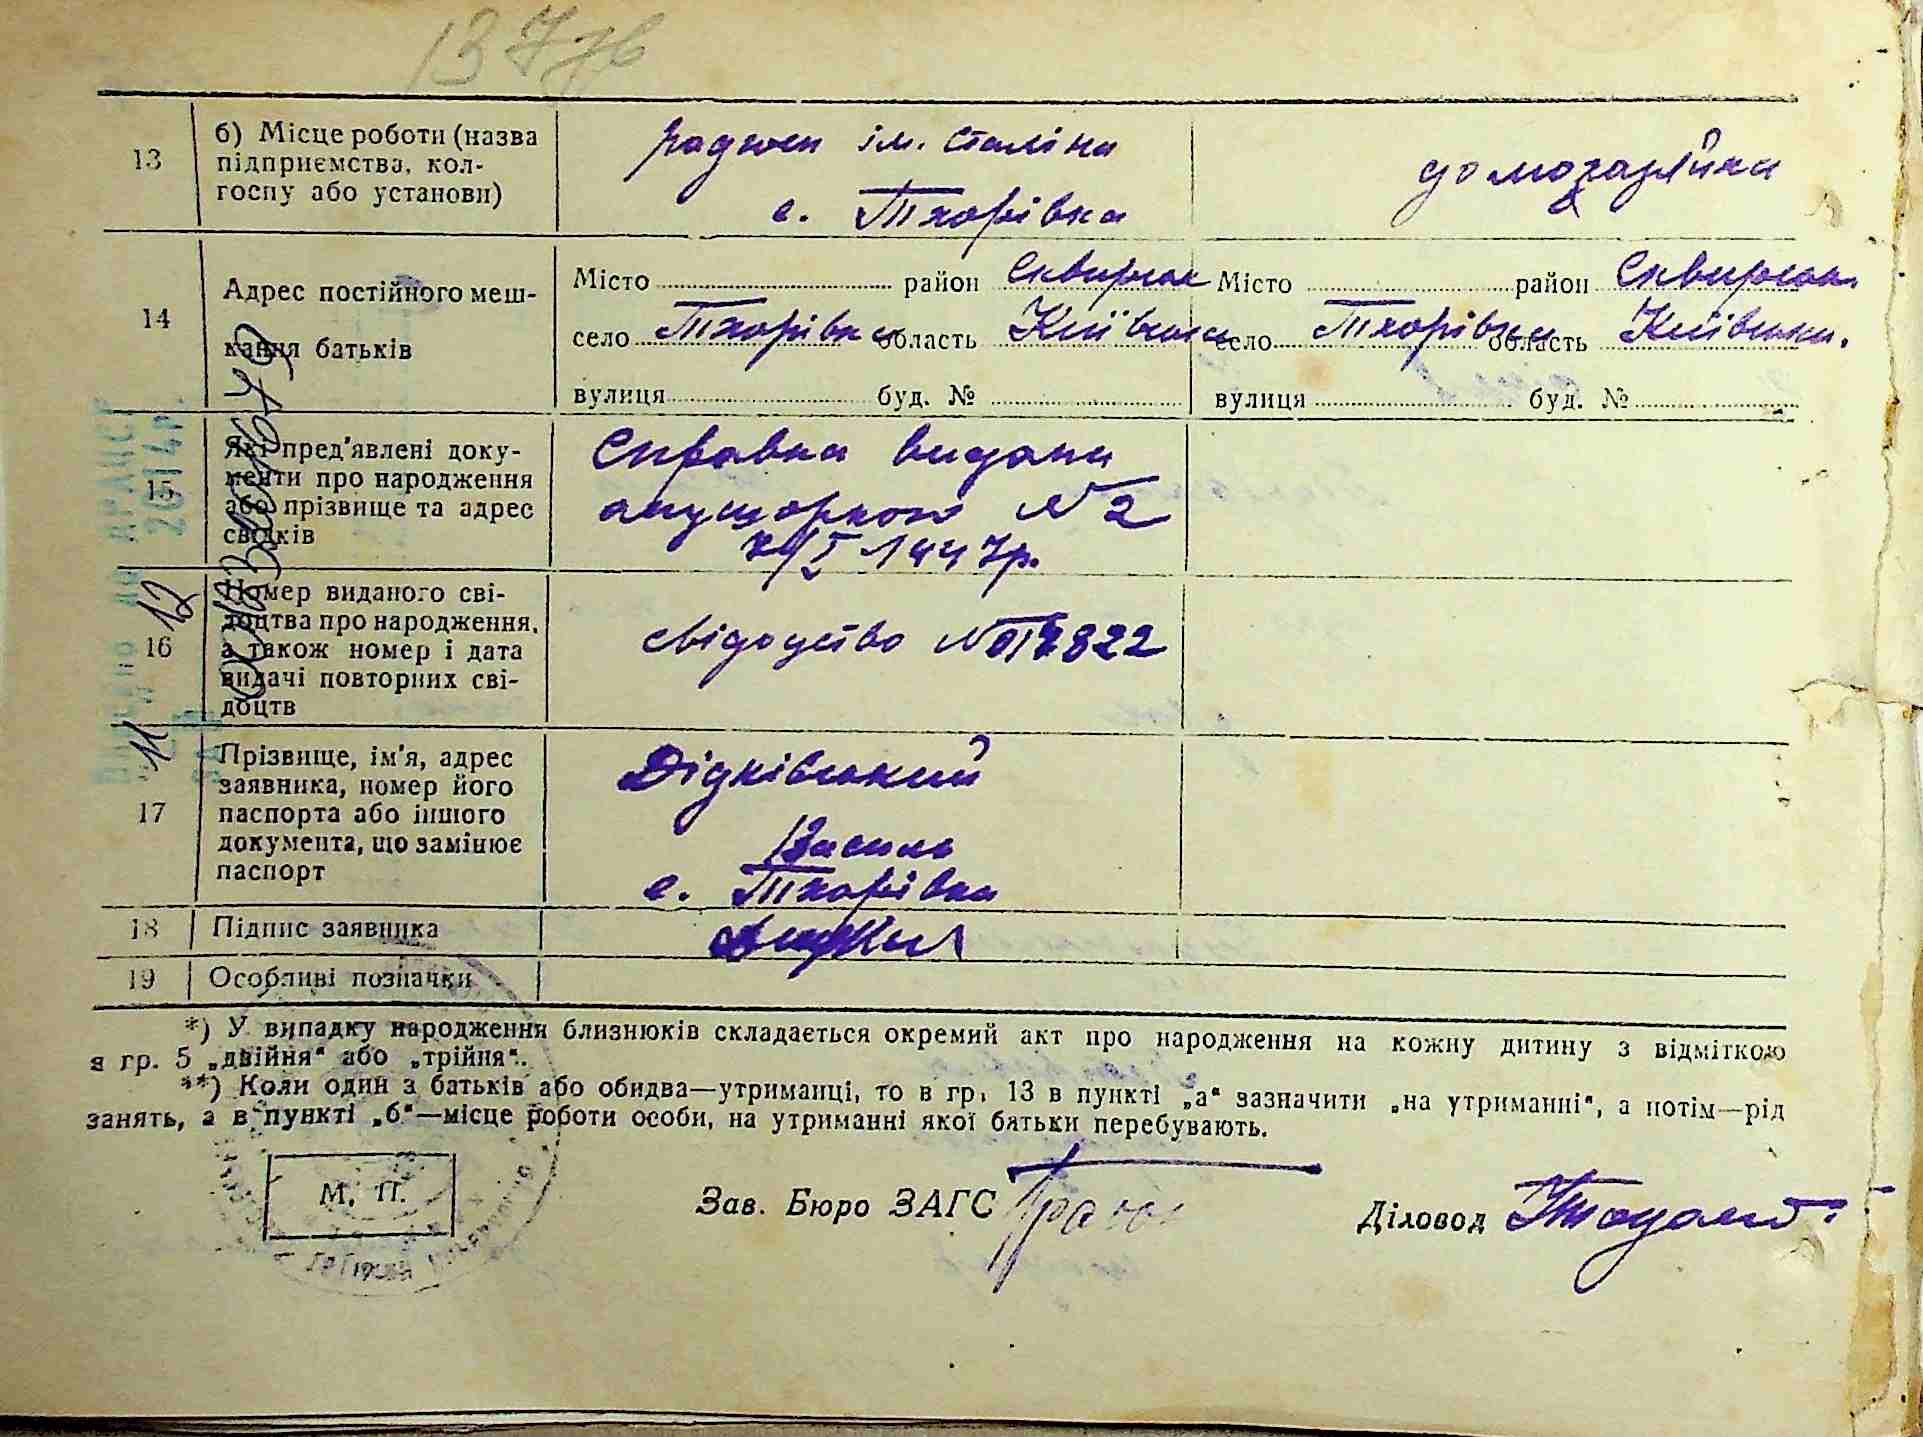 137зв
13
б) Місце роботи (назва
підприємства, кол-
госпу або установи)
радгосп ім. Сталіна
с. Тхорівка
домохазяйка
14
Адрес постійного меш-
кання батьків
Місто район Сквирськ
село Тхорівка область Київська
вулиця буд. №
Місто район Сквирськ.
село Тхорівка область Київськ.
вулиця буд. №
15
Які пред'явлені доку-
менти про народження
або прізвище та адрес
свідків
Справка видана
акушеркою № 2
1947р.
16
Номер виданого сві-
доцтва про народження,
а також номер і дата
видачі повторних сві-
доцтв
свідоцтво №
17
Прізвище, ім'я, адрес
заявника, номер його
паспорта або іншого
документа, що замінює
паспорт
Дідківський
Василь
с. Тхорівка
18
Підпис заявника
19
Особливі позначки
*) У випадку народження близнюків складається окремий акт про народження на кожну дитину з відміткою
в гр. 5 „двійня“ або „трійня“.
**) Коли один з батьків або обидва—утриманці, то в гр. 13 в пункті „а“ зазначити „на утриманні“, а потім—рід
занять, а в пункті „б“—місце роботи особи, на утриманні якої батьки перебувають.
М. П.
Зав. Бюро ЗАГС
Діловод
ДРАЦСГ
2014р.
11 12